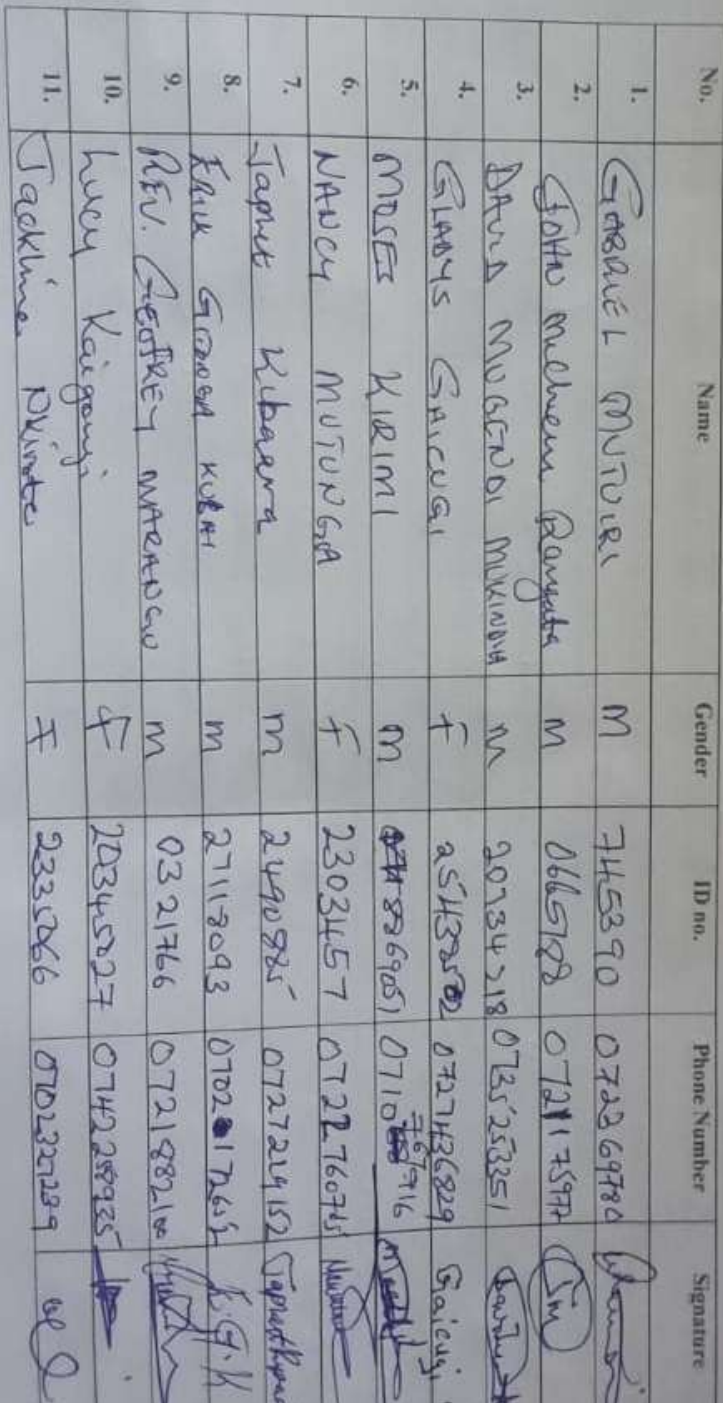 No. Name Gender ID no. Phone Number Signature
1. GABRIEL MUTUIRI M 7145390 0722369780
2. JOHN M 0665188 0721175977 Jm
3. DAVID MUGENDI MUKINDIA M 20734218 0735253351
4. GLADYS GAICUGI F 0727436829 Gaicugi
5. MOSES KIRIMI M
6. NANCY MUTUNGA F 2303457 0722760745
7. Japhet Kibaara M 2490885 0727224152
8. ERICK KUBAI M 27118093 E.G.K
9. REV. GEOFREY MARANGU M 0321766 0721882100
10. Lucy Kaigongi F 20345027 0742258935
11. Jackline Nkirote F 2335066 0702327239